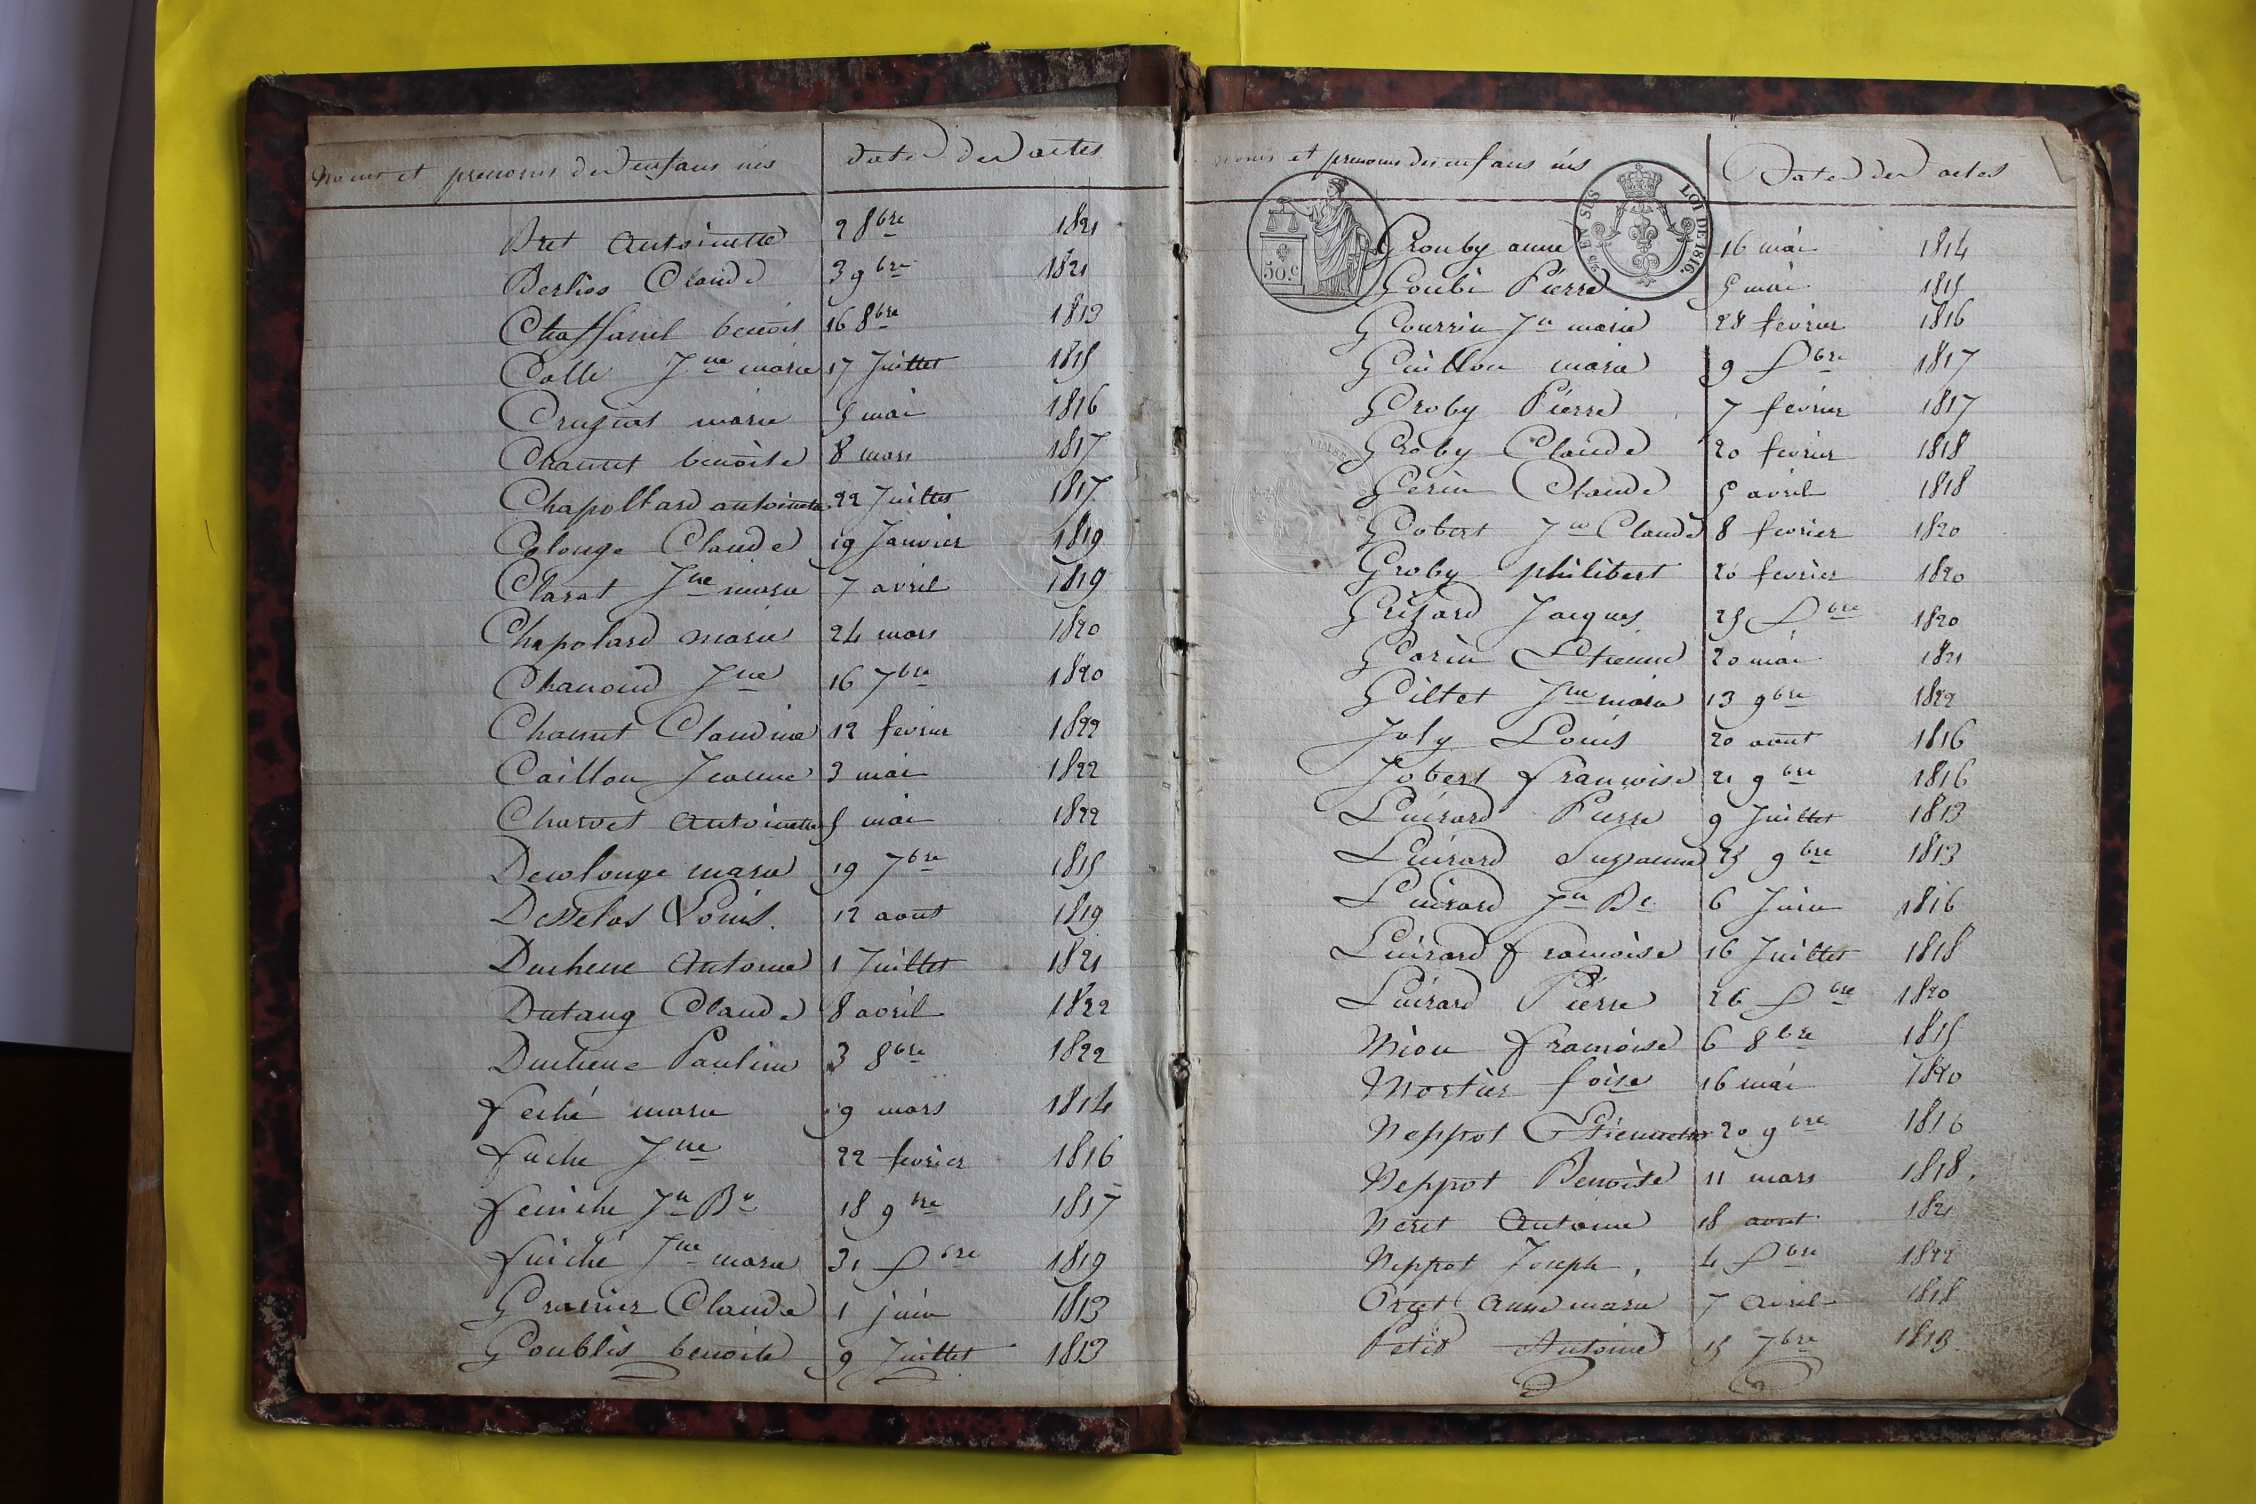 Noms et prenoms des enfans nés
date des actes
Bret antoinette 2 8bre 1821
Berlios Claude 3 9bre 1821
Chaffanel benoit 16 8bre 1813
Colle Jne marie 17 Juillet 1815
marie 5 mai 1816
Chanut benoite 8 mars 1817
Chapollard antoinette 22 Juillet 1817
Colonge Claude 19 Janvier 1819
Claret Jne marie 7 avril 1819
Chapolard marie 24 mars 1820
Chanoud Jne 16 7bre 1820
Chanut Claudine 12 fevrier 1822
Caillou Jeanne 3 mai 1822
Charvet antoinette 5 mai 1822
Decolonge marie 19 7bre 1815
Desselas Louis. 12 aout 1819
Duchene antoine 1 Juillet 1821
Dutang Claude 8 avril 1822
Duchene Pauline 3 8bre 1822
feché marie 9 mars 1814
Jne 22 fevrier 1816
Jn Bte 18 9bre 1817
Jne marie 31 Xbre 1819
Grenier Claude 1 juin 1813
Goublis benoite 9 Juillet 1813
Noms et prenoms des enfans nés
Dates des actes
50.C
LOI DE 1816.
Grouby anne 16 mai 1814
Goubi Pierre 5 mai 1815
Gourrin Jn marie 28 fevrier 1816
Guillon marie 9 Xbre 1817
Groby Pierre 7 fevrier 1817
Groby Claude 20 fevrier 1818
Gerin Claude 5 avril 1818
Gobert Jn Claude 8 fevrier 1820
Groby philibert 20 fevrier 1820
Grizard Jacques 25 Xbre 1820
Gorin Etienne 20 mai 1821
Giltet Jne marie 13 9bre 1822
Joly Louis 20 aout 1816
Jobert francoise 21 9bre 1816
Luirard Pierre 9 Juillet 1813
Luirard Suzanne 25 9bre 1813
Luirard Jn Bte 6 Juin 1816
Luirard francoise 16 Juillet 1818
Luirard Pierre 26 Xbre 1820
Mion francoise 6 8bre 1815
Mortier foise 16 mai 1820
Neppot Etiennette 20 9bre 1816
Neppot Benoite 11 mars 1818.
Neret antoine 18 aout 1821
Neppot Joseph. 4 Xbre 1822
Orget anne marie 7 avril 1818
Petit Antoine 15 7bre 1813